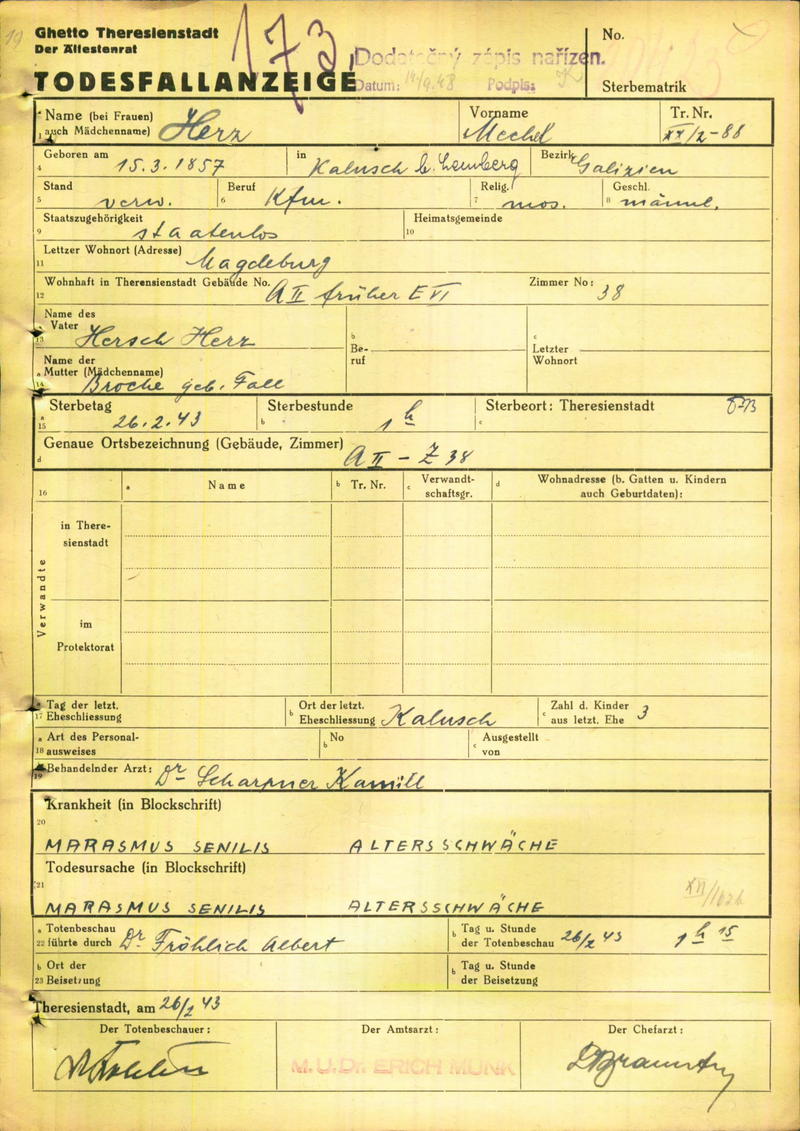 19
Ghetto Theresienstadt
Der Ältestenrat
173,
Dodatečný zápis nařízen.
Datum: 14/9.48 Podpis: K
TODESFALLANZEIGE
No.
Sterbematrik
Name (bei Frauen) auch Mädchenname) Herz
Vorname Mechel
Tr. Nr. XX/2-88
1
Geboren am 15.3.1857
in Kalusch b. Lemberg
Bezirk Galizien
4
Stand verw.
Beruf Kfm.
Relig. mos.
Geschl. männl.
5 6 7 8
Staatszugehörigkeit staatenlos
Heimatsgemeinde
9 10
Lettzer Wohnort (Adresse) Magdeburg
11
Wohnhaft in Therensienstadt Gebäude No. A II früher E VI
Zimmer No: 38
12
Name des
a Vater Hersch Herz
13
b Be-
ruf
c Letzter
Wohnort
Name der
a Mutter (Mädchenname)
14 Broche geb. Fall
a Sterbetag 26.2.43
b Sterbestunde 1 h
c Sterbeort: Theresienstadt
15
Genaue Ortsbezeichnung (Gebäude, Zimmer) A II - Z 38
d
16 a Name b Tr. Nr. c Verwandt-
schaftsgr. d Wohnadresse (b. Gatten u. Kindern
auch Geburtdaten):
Verwandte
in There-
sienstadt
im
Protektorat
a Tag der letzt.
17 Eheschliessung
b Ort der letzt.
Eheschliessung Kalusch
c Zahl d. Kinder
aus letzt. Ehe 3
a Art des Personal-
18 ausweises
b No
c Ausgestellt
von
19 Behandelnder Arzt: Dr Scharpner Kamill
Krankheit (in Blockschrift)
20
MARASMUS SENILIS ALTERSSCHWÄCHE
Todesursache (in Blockschrift)
21
MARASMUS SENILIS ALTERSSCHWÄCHE
a Totenbeschau
22 führte durch Dr Fröhlich Albert
b Tag u. Stunde
der Totenbeschau 26/2 43 1 h 15
b Ort der
23 Beisetzung
b Tag u. Stunde
der Beisetzung
Theresienstadt, am 26/2 43
Der Totenbeschauer:
Der Amtsarzt:
Der Chefarzt:
M.U.Dr. ERICH MUNK